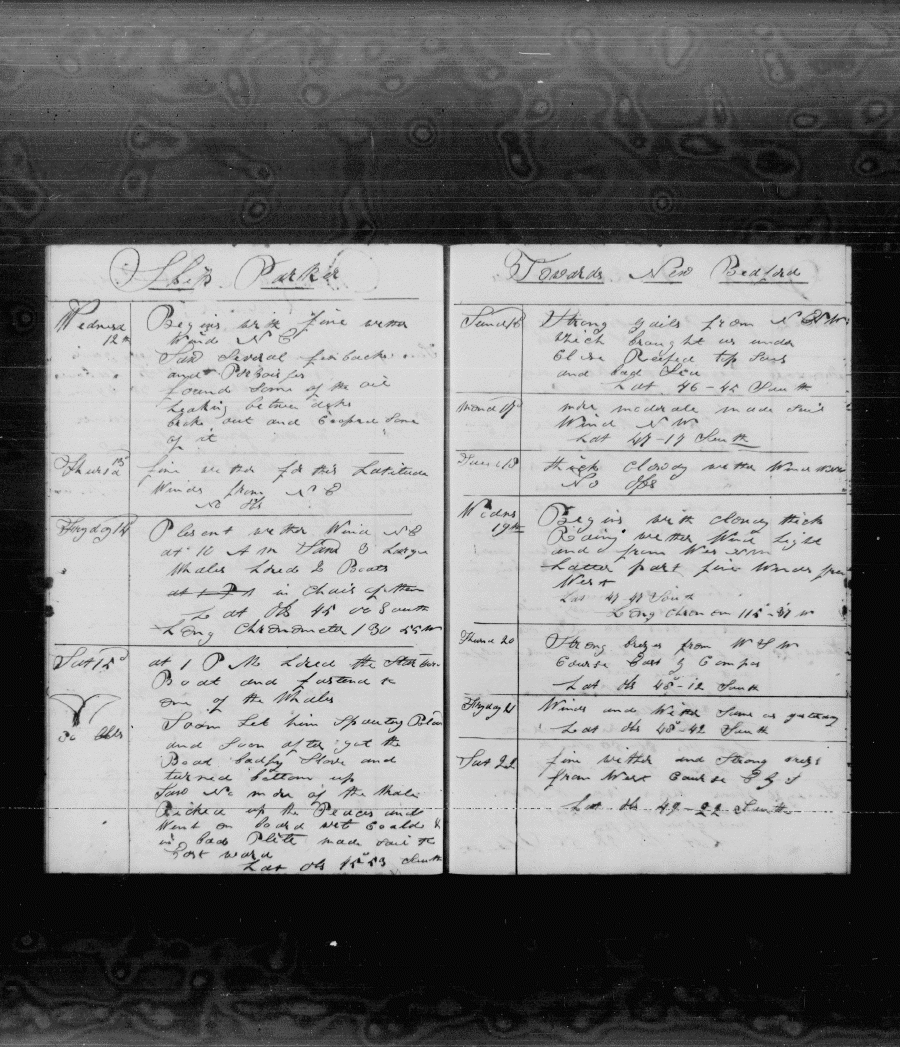 Ship Parker
Wednesd 12th
Begins with fine wether
Wind N E
Saw several finbacks
and Porboises
found some of the oil
Leaking between decks
broke out and Coopered some
of it
Thursd 13
fine wether for this Latitude
Winds from N E
No Obs
Fryday 14
Plesent wether Wind N E
at 10 A M Saw 3 Large
Whales Lored 2 Boats
in chais of them
Lat Obs 45 00 South
Long Chronometer 130 55 W
Sat 15
at 1 P M Lored the
Boat and fastend to
one of the Whales
Soon Let him Spouting Blood
and soon after got the
Boat badly Stove and
turned bottom up
Saw No more of the Whale
Picked up the Peaces and
Went on board wet Could &
in bad Plite made Sail to
Lat Obs 45 53 South
Towards New Bedford
Sund 16
Strong gails from N
which brought us under
Close Reefed top Sails
and bad Sea
Lat 46-45 South
Mond 17
more moderate made Sail
Wind N W
Lat 47-17 South
Tuesd 18
thick Clowdy wether Wind
No Obs
Wedns 19th
Begins with cloudy thick
Rainy wether Wind Light
and from
Latter part fine Winds from
West
Lat 47 47 South
Long Chron 115-37 W
Thursd 20
Strong brezes from W S W
Course East by Compas
Lat Obs 48-12 South
Fryday 21
Winds and Wether Same as yesterday
Lat Obs 48-42 South
Sat 22
fine wether and Strong
from West Course E by S
Lat Obs 49-22 South